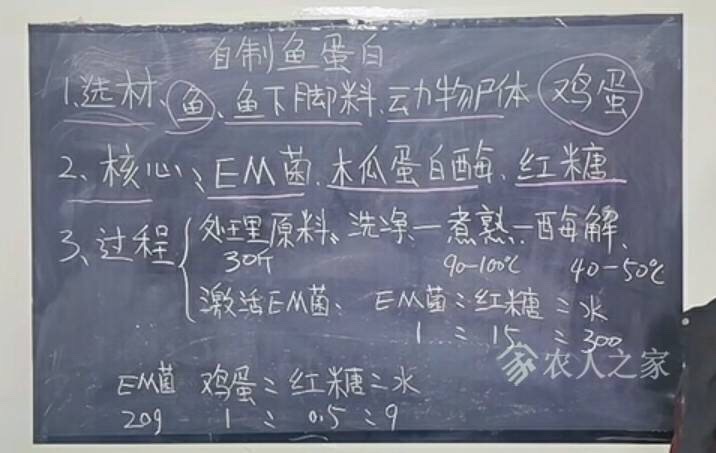 自制鱼蛋白
1.选材、鱼、鱼下脚料、动物尸体 鸡蛋
2、核心:EM菌、木瓜蛋白酶、红糖
3、过程 处理原料、洗净一煮熟一酶解、
30斤 90-100℃ 40-50℃
激活EM菌: EM菌:红糖:水
1 : 15 : 300
农人之家
EM菌 鸡蛋:红糖:水
20g 1 : 0.5 : 9